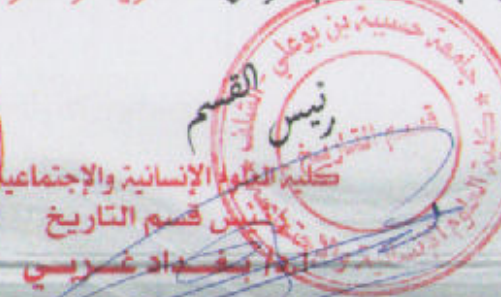 رئيس القسم
جامعة حسيبة بن بوعلي الشلف
قسم التاريخ
كلية العلوم الإنسانية والإجتماعية
رئيس قسم التاريخ
أ.د/ بغداد غربي